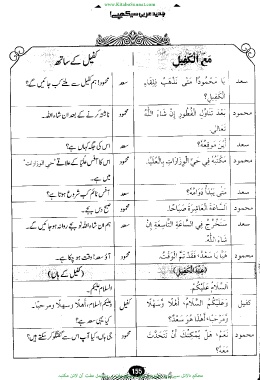 www.KitaboSunnat.com
جدید عربی سیکھیے!
مَعَ الْكَفِيلِ
کفیل کے ساتھ
سعد
يَا مَحْمُودُ! مَتَى نَذْهَبُ لِلِقَاءِ الْكَفِيلِ؟
سعد
محمود! ہم کفیل سے ملنے کب جائیں گے؟
محمود
بَعْدَ تَنَاوُلِ الْفُطُورِ إِنْ شَاءَ اللَّهُ تَعَالَى.
محمود
ناشتہ کرنے کے بعد ان شاء اللہ۔
سعد
أَيْنَ مَوْقِعُهُ؟
سعد
اس کی جگہ کہاں ہے؟
محمود
مَكْتَبُهُ فِي حَيِّ الْوِزَارَاتِ بِالْعُلَيَّا.
محمود
اس کا آفس علیا کے علاقے "حی الوزارات" میں ہے۔
سعد
مَتَى يَبْدَأُ دَوَامُهُ؟
سعد
آفس ٹائم کب شروع ہوتا ہے؟
محمود
السَّاعَةَ الْعَاشِرَةَ صَبَاحًا.
محمود
صبح دس بجے۔
سعد
سَنَخْرُجُ فِي السَّاعَةِ التَّاسِعَةِ إِنْ شَاءَ اللَّهُ.
سعد
ہم ان شاء اللہ نو بجے روانہ ہو جائیں گے۔
محمود
هَيَّا يَا سَعْدُ! فَقَدْ تَمَّ الْوَقْتُ.
محمود
آؤ سعد! وقت ہو چکا ہے۔
(عِنْدَ الْكَفِيلِ)
(کفیل کے ہاں)
السَّلَامُ عَلَيْكُمْ.
السلام علیکم۔
کفیل
وَعَلَيْكُمُ السَّلَامُ، أَهْلًا وَسَهْلًا وَمَرْحَبًا، أَهَذَا هُوَ سَعْدٌ؟
کفیل
وعلیکم السلام، أھلا وسھلا ومرحبا۔ کیا یہی سعد ہے؟
محمود
نَعَمْ، هَلْ يُمْكِنُكَ أَنْ تَتَحَدَّثَ مَعَهُ؟
محمود
جی ہاں، کیا آپ اس سے گفتگو کر سکتے ہیں؟
155